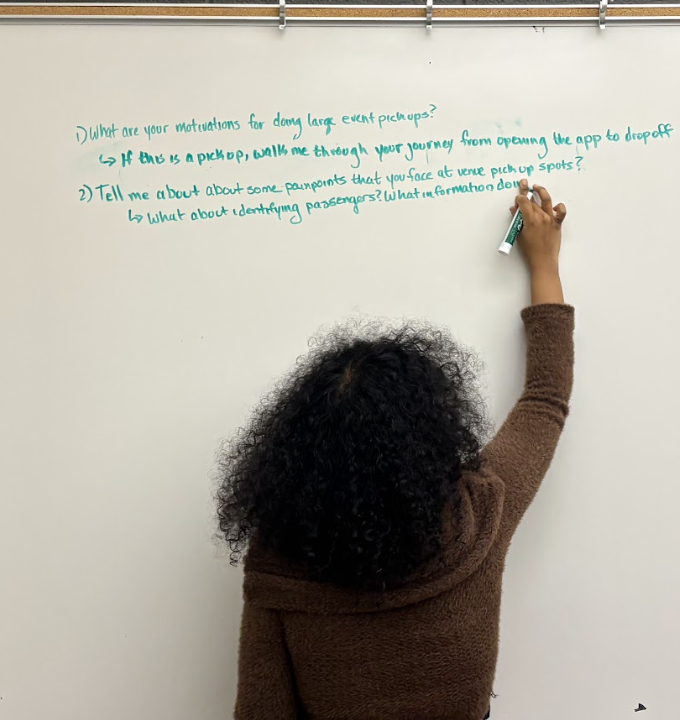 1) What are your motivations for doing large event pickups?
↳ If this is a pickup, walk me through your journey from opening the app to dropoff
2) Tell me about about some painpoints that you face at venue pick up spots?
↳ What about identifying passengers? What information do